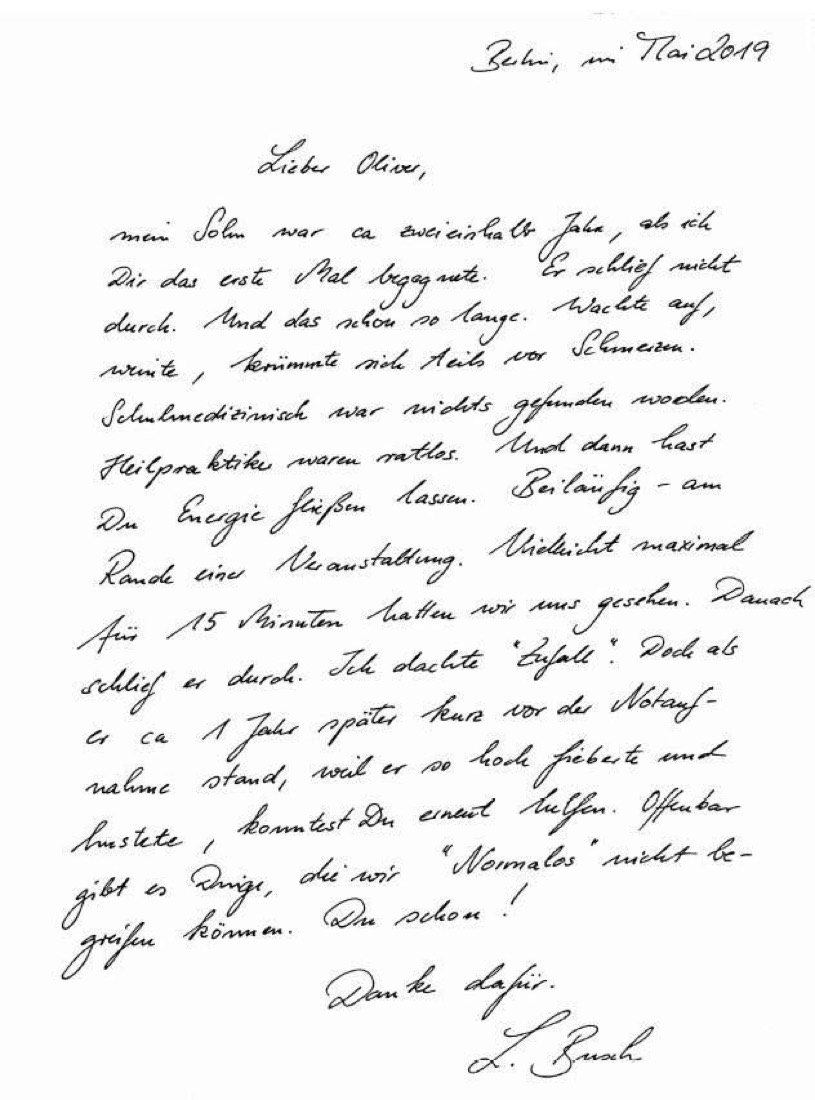 Berlin, im Mai 2019
Lieber Oliver,
mein Sohn war ca zweieinhalb Jahre, als ich
Dir das erste Mal begegnete. Er schlief nicht
durch. Und das schon so lange. Wachte auf,
weinte, krümmte sich teils vor Schmerzen.
Schulmedizinisch war nichts gefunden worden.
Heilpraktiker waren ratlos. Und dann hast
Du Energie fließen lassen. Beiläufig - am
Rande einer Veranstaltung. Vielleicht maximal
für 15 Minuten hatten wir uns gesehen. Danach
schlief er durch. Ich dachte "Zufall". Doch als
er ca 1 Jahr später kurz vor der Notauf-
nahme stand, weil er so hoch fieberte und
hustete, konntest Du erneut helfen. Offenbar
gibt es Dinge, die wir "Normalos" nicht be-
greifen können. Du schon!
Danke dafür.
L. Busch